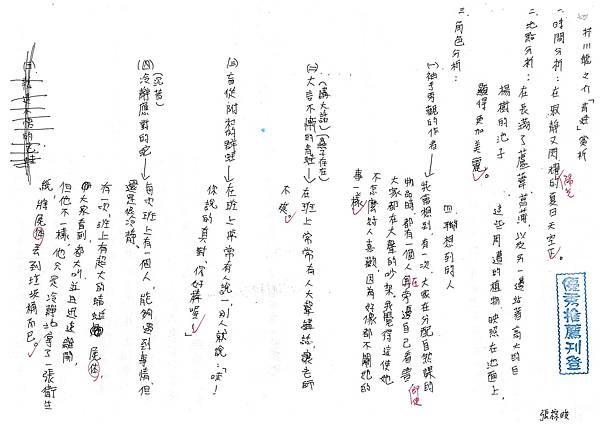 芥川龍之介「青蛙」賞析
一、時間分析：在寂靜又閃耀的夏日天空下。
陽光
二、地點分析：在長滿了蘆葦菖蒲，以及另一邊站著高大的白
楊樹的池子，這些周邊的植物映照在池面上，
顯得更加美麗。
三、角色分析：
四、聯想到的人
(一)袖手旁觀的作者→我聯想到有一次，大家在分配自然課的
物品時，都有一個人在旁邊自己看書，即使
大家都在大聲的吵架。我覺得這使她
不怎麼討人喜歡，因為好像都不關她的
事一樣。
(講大話)(愚子存在)
(二)大言不慚的青蛙→在班上，常常有人大聲講話，讓老師
不
(三)盲從附和的群蛙→在班上常常有人說一，別人就說：「哇！
你說的真對，你好棒喔！」
(四)冷靜應對的蛇→每次班上有一個人，能夠遇到事情，但
還是很冷靜。
有一次，班上有超大的蟑螂尾值，
大家看到都大叫並且迅速離開，
但他不一樣，他只是冷靜地拿了一張衛生
紙，將尾值丟到垃圾桶而已。
優秀推薦刊登